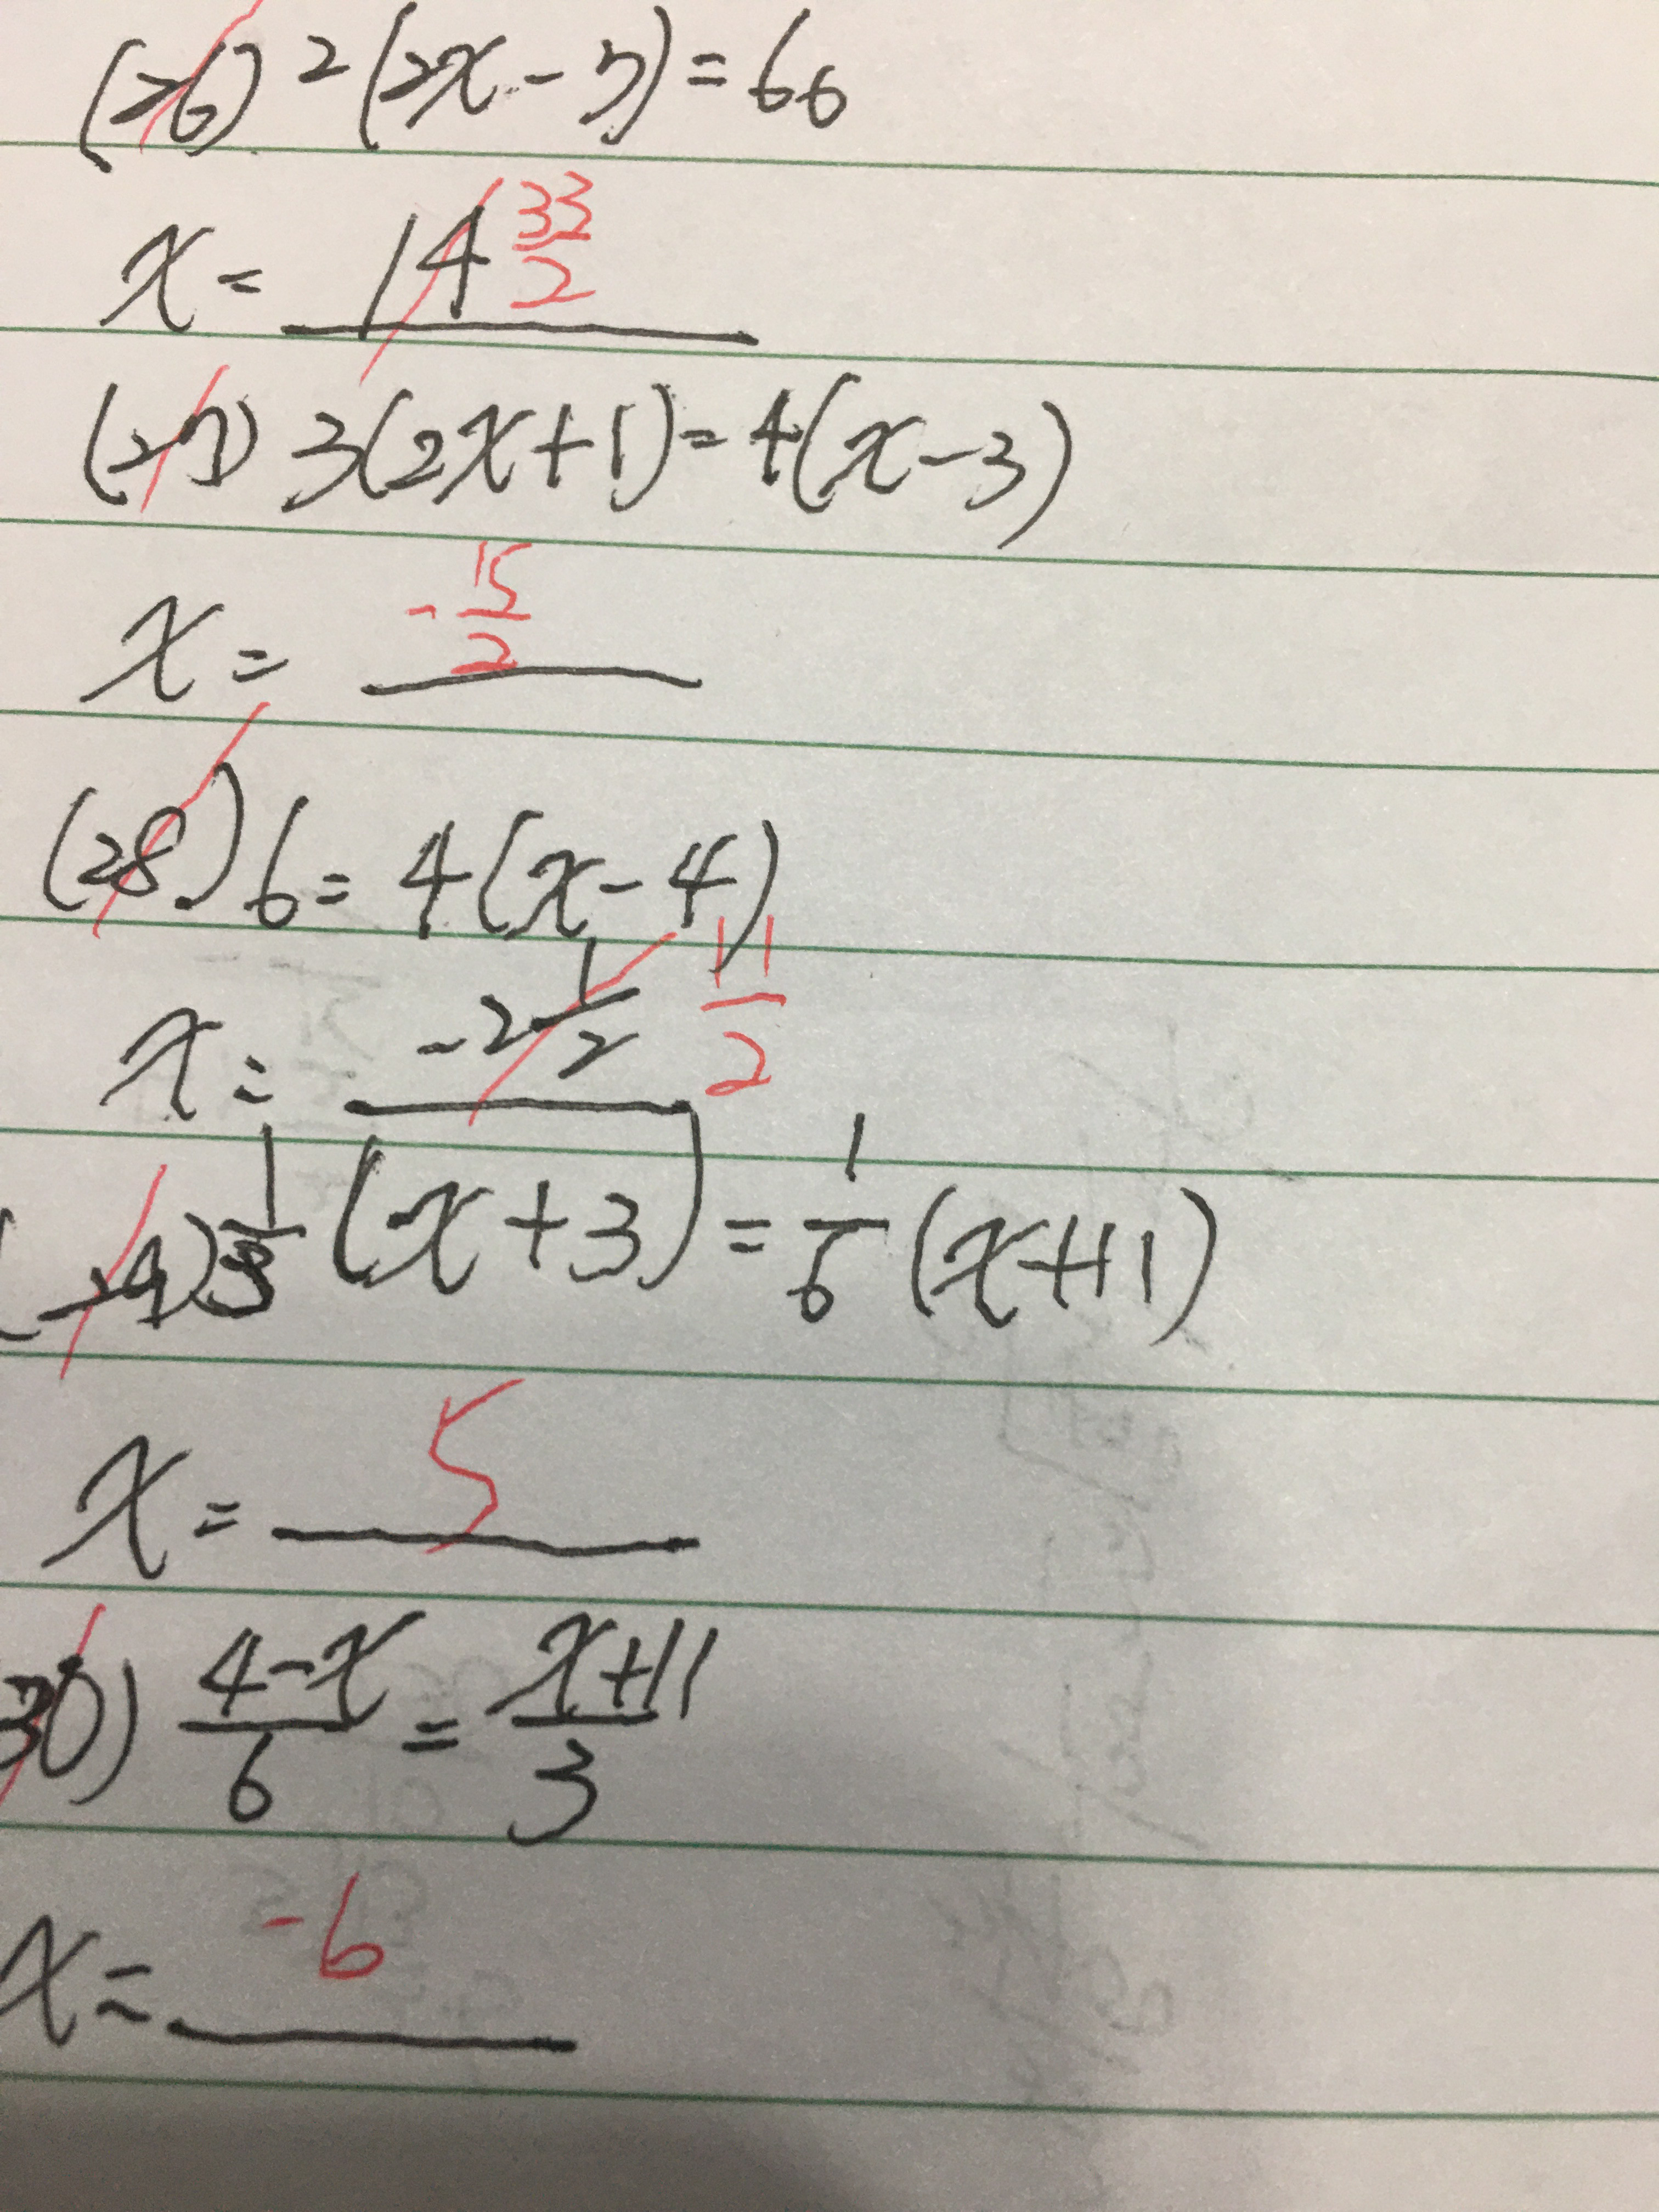 (26) 2(2x-3)=60
x= 14 33/2
(27) 3(2x+1)=4(x-3)
x= -15/2
(28) 6=4(x-4)
x= -2 1/2 11/2
(29) 1/3 (x+3)=1/6 (x+11)
x= 5
30) 4-x/6 = x+11/3
x= -6